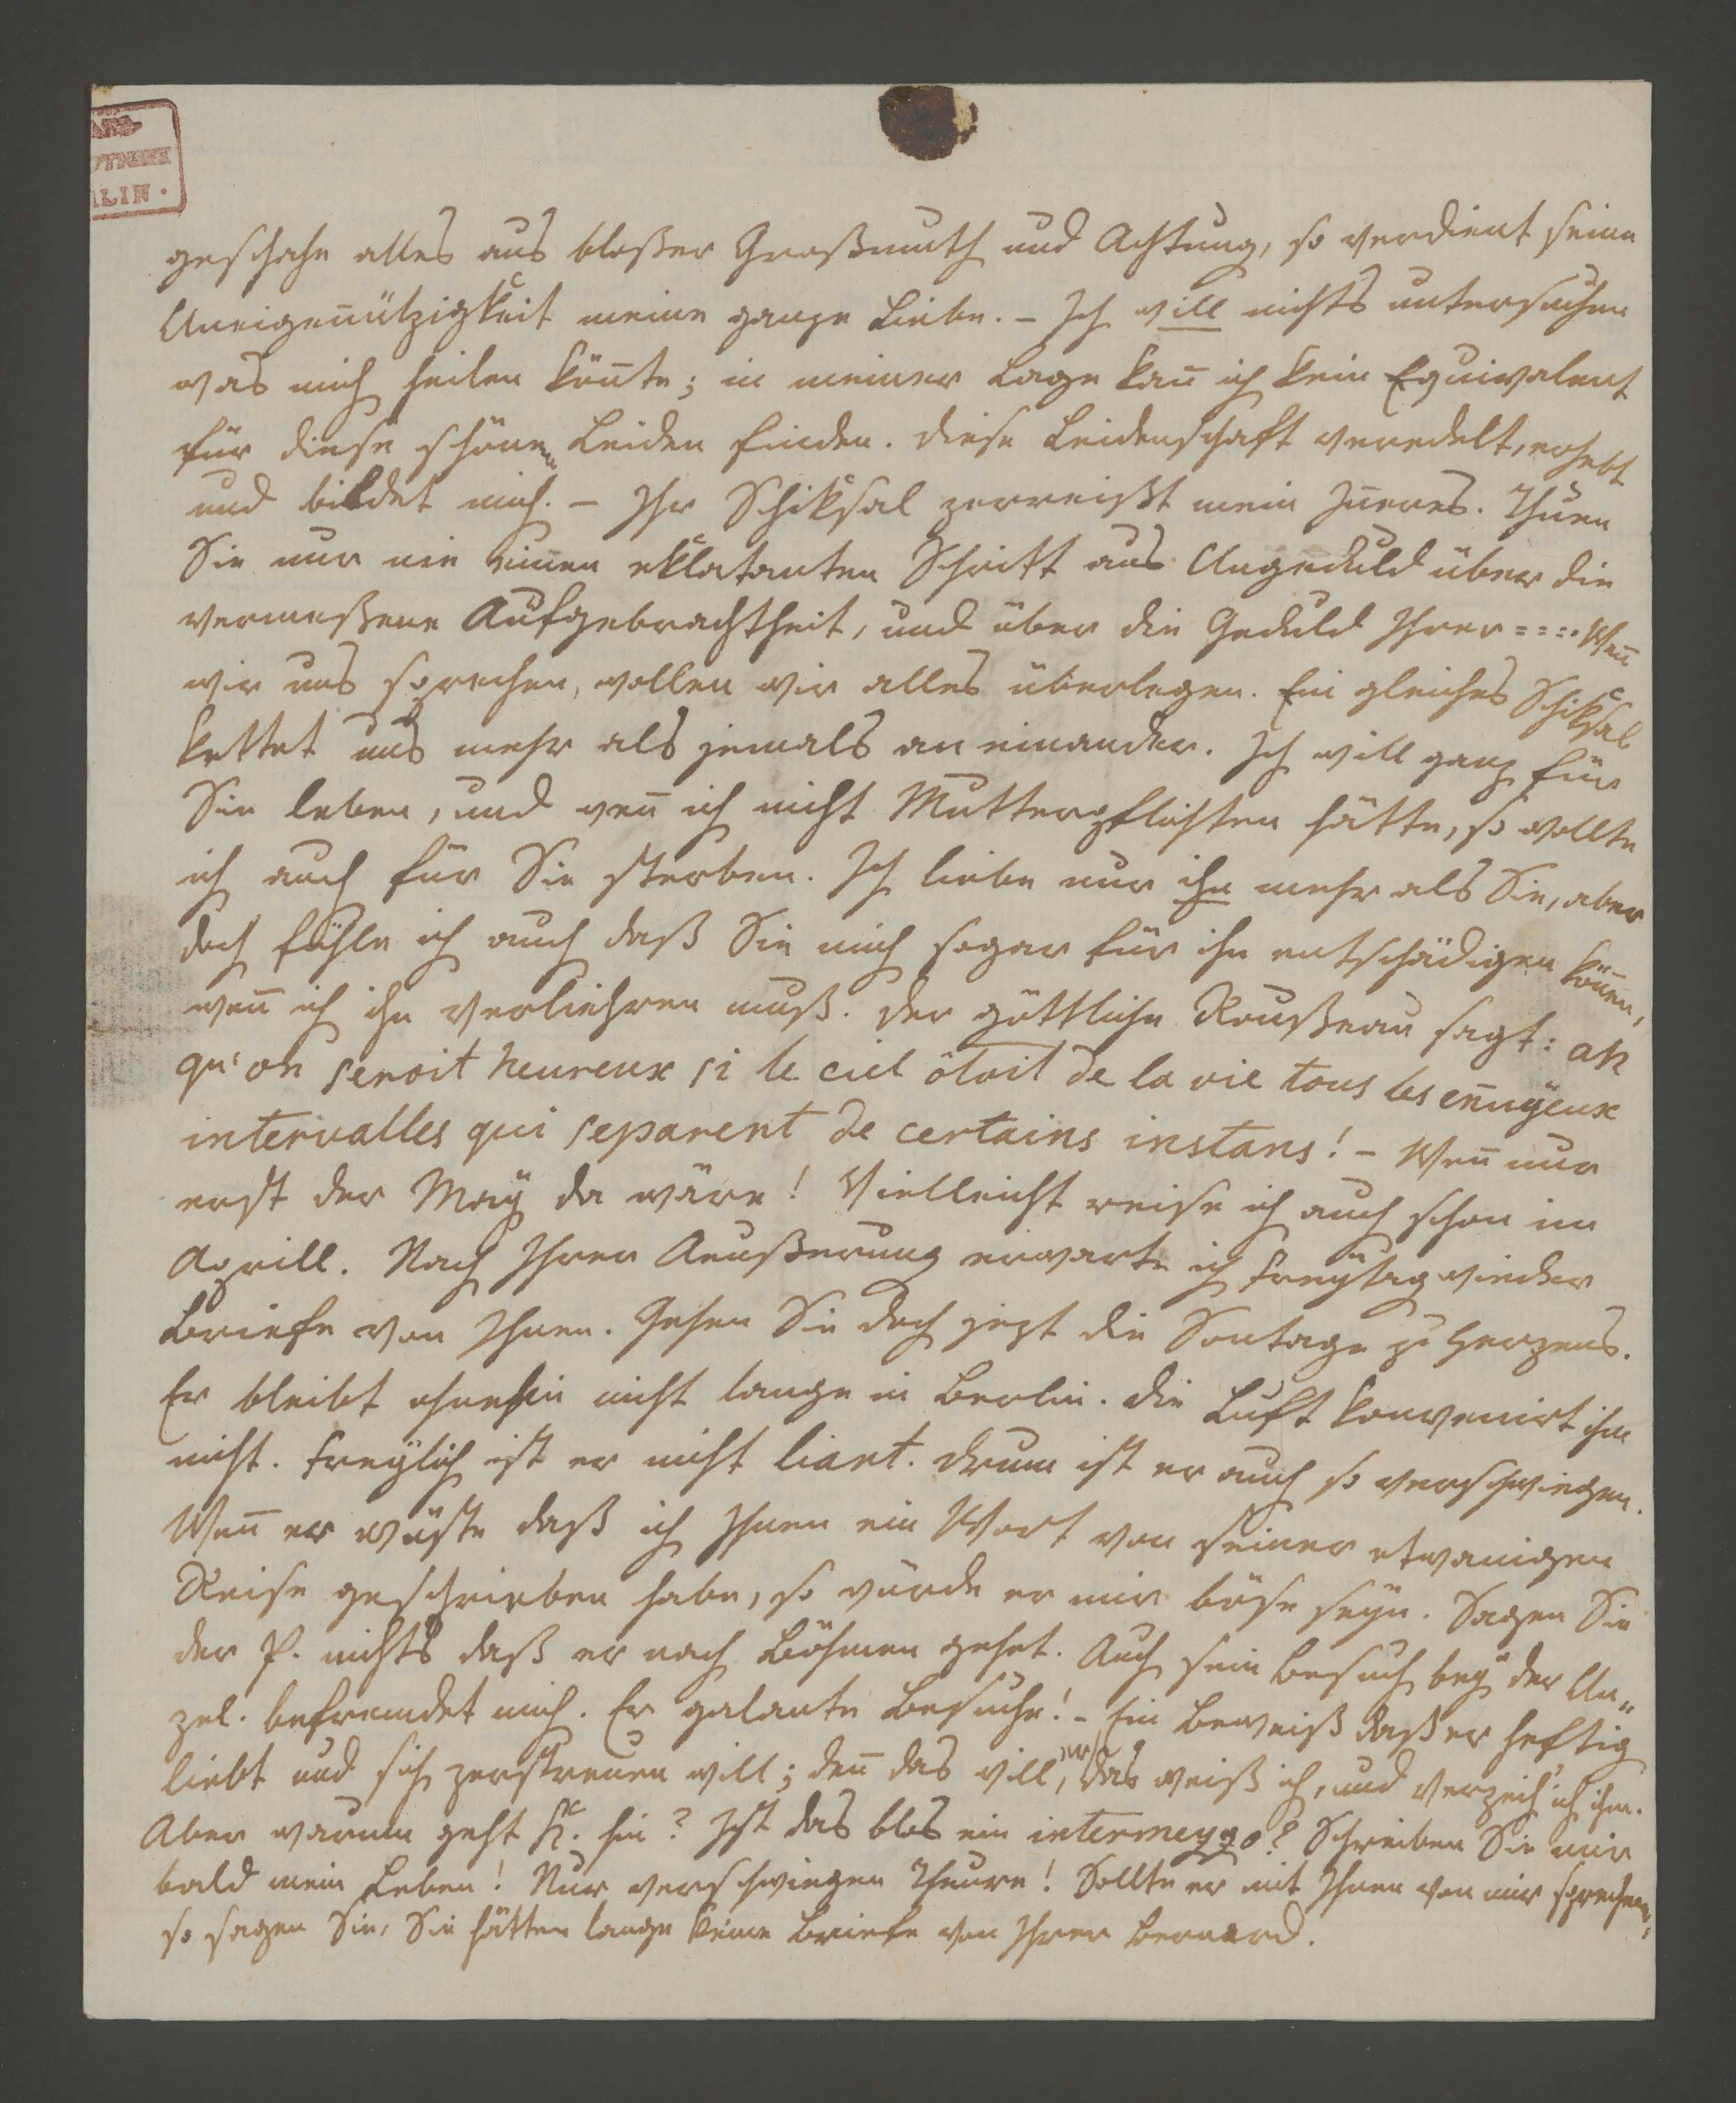 LIN.
geschahe alles aus bloßer Großmuth und Achtung, so verdient seine
Uneigen̄ützigkeit meine ganze Liebe. – Ich will nichts untersuchen
was mich heilen kön̄te; in meiner Lage kan̄ ich kein Equivalent
für diese schönen Leiden finden. Diese Leidenschaft veredelt, erhebt
und bildet mich. – Ihr Schiksal zerreißt mein In̄eres. Thuen
Sie nur nie einen eklatanten Schritt aus Ungeduld über die
vermeßene Aufgebrachtheit, und über die Geduld Ihrer ==== Wen̄
wir uns sprechen, wollen wir alles überlegen. Ein gleiches Schiksal
kettet uns mehr als jemals an einander. Ich will ganz für
Sie leben, und wen̄ ich nicht Mutterpflichten hätte, so wollte
ich auch für Sie sterben. Ich liebe nur ihn mehr als Sie, aber
doch fühle ich auch daß Sie mich sogar für ihn entschädigen kön̄en,
wen̄ ich ihn verliehren muß. Der göttliche Roußeau sagt: ah
qu'on seroit heureux si le ciel ôtoit de la vie tous les en̄uÿeux
intervalles qui separent de certains instans! – Wen̄ nur
erst der Maÿ da wäre! Vielleicht reise ich auch schon im
Aprill. Nach Ihrer Aeußerung erwarte ich Freÿtag wieder
Briefe von Ihnen. Gehen Sie doch jezt die Sontage zu Herzens.
Er bleibt ohnehin nicht lange in Berlin. Die Luft konvenirt ihm
nicht. Freÿlich ist er nicht liant. Drum ist er auch so verschwiegen.
Wen̄ er wüste daß ich Ihnen ein Wort von seiner etwanigen
Reise geschrieben habe, so würde er mir böse seÿn. Sagen Sie
der P. nichts daß er nach Böhmen gehet. Auch sein Besuch beÿ der Un„
zel. befremdet mich. Er galante Besuche! – Ein Beweiß daß er heftig
liebt und sich zerstreuen will; den̄ das will er, das weiß ich, und verzeih' ich ihm.
Aber warum geht H. hin? Ist das blos ein intermezzo? Schreiben Sie mir
bald mein Leben! Nur verschwiegen Theure! Sollte er mit Ihnen von mir sprechen,
so sagen Sie, Sie hätten lange keine Briefe von Ihrer Bernard.